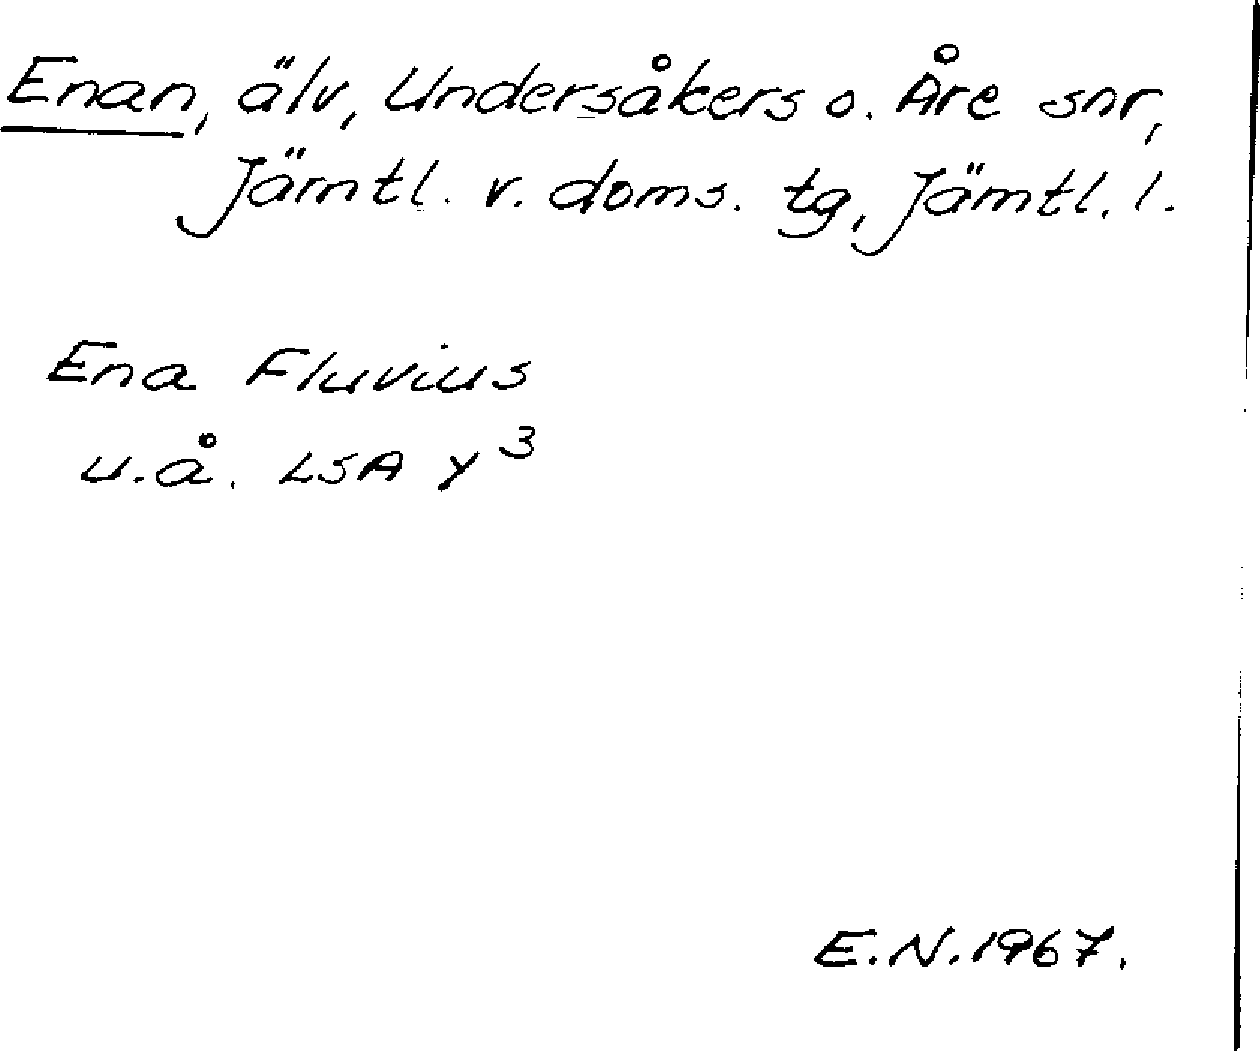 Enan, älv, Undersåkers o. Åre snr,
Jämtl. v. doms. tg, Jämtl. l.
Ena Fluvius
u.å. LSA Y³
E.N. 1967.